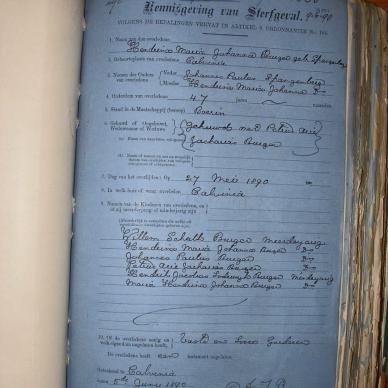 Kennisgeving van Sterfgeval.
VOLGENS DE BEPALINGEN VERVAT IN ARTIKEL 9, ORDONNANTIE No. 104.
1. Naam van den overledene
Hendrina Maria Johanna Burger geb. Spangenberg
2. Geboorteplaats van overledene Calvinia
3. Namen der Ouders van overledene Vader Johannes Paulus Spangenberg
Moeder Hendrina Maria Johanna
4. Ouderdom van overledene 47 jaren maanden
5. Stand in de Maatschappij (beroep) Boerin
6. Gehuwd of Ongehuwd, Weduwnaar of Weduwe Gehuwd met Petrus Arie
Zacharias Burger
7. Dag van het overlijden: Op 27 Mei 1890
8. In welk huis of waar overleden Calvinia
9. Namen van de Kinderen van overledene, en of zij meerderjarig of minderjarig zijn
Willem Schalk Burger Meerderjarig
Hendrina Maria Johanna Burger Do
Johannes Paulus Burger Do
Petrus Arie Zacharias Burger Do
Hendrik Jacobus Lodewyk Burger Minderjarig
Maria Hendrina Johanna Burger Do
10. Of de overledene eenig en welk eigendom nagelaten heeft. Vaste en Losse Goederen
De overledene heeft testament nagelaten.
Gedateerd te Calvinia
den 5de Juny 1890